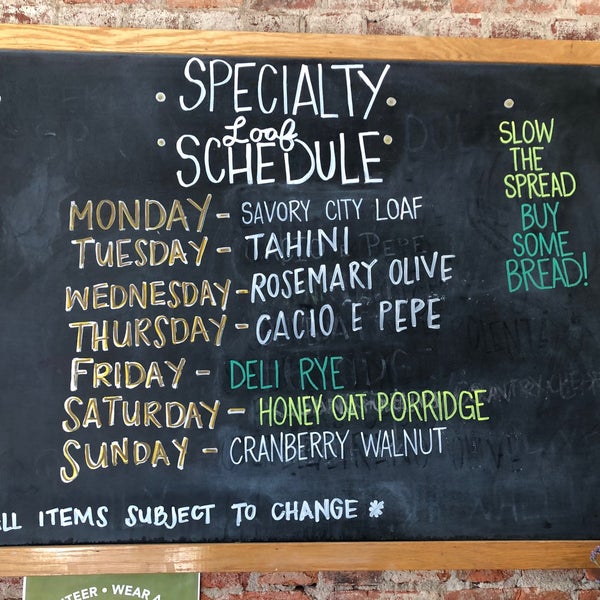 SPECIALTY
Loaf
SCHEDULE
MONDAY - SAVORY CITY LOAF
TUESDAY - TAHINI
WEDNESDAY - ROSEMARY OLIVE
THURSDAY - CACIO E PEPE
FRIDAY - DELI RYE
SATURDAY - HONEY OAT PORRIDGE
SUNDAY - CRANBERRY WALNUT
ITEMS SUBJECT TO CHANGE *
SLOW
THE
SPREAD
BUY
SOME
BREAD!
• WEAR A